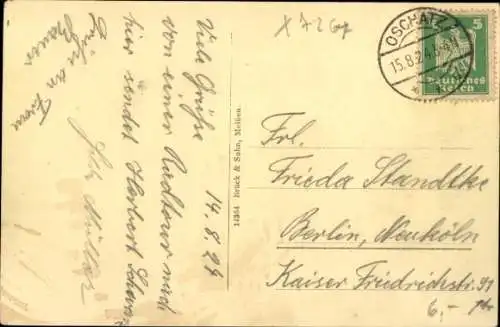 Viele Grüße 14.8.24
von einer Radtour nach
hier sendet Herbert
Grüße an Frau
Müller
14364 Brück & Sohn, Meißen.
OSCHATZ
15.8.24
5
Deutsches
Reich
Frl.
Frieda Standtke
Berlin, Neuköln
Kaiser Friedrichstr. 91
6,-